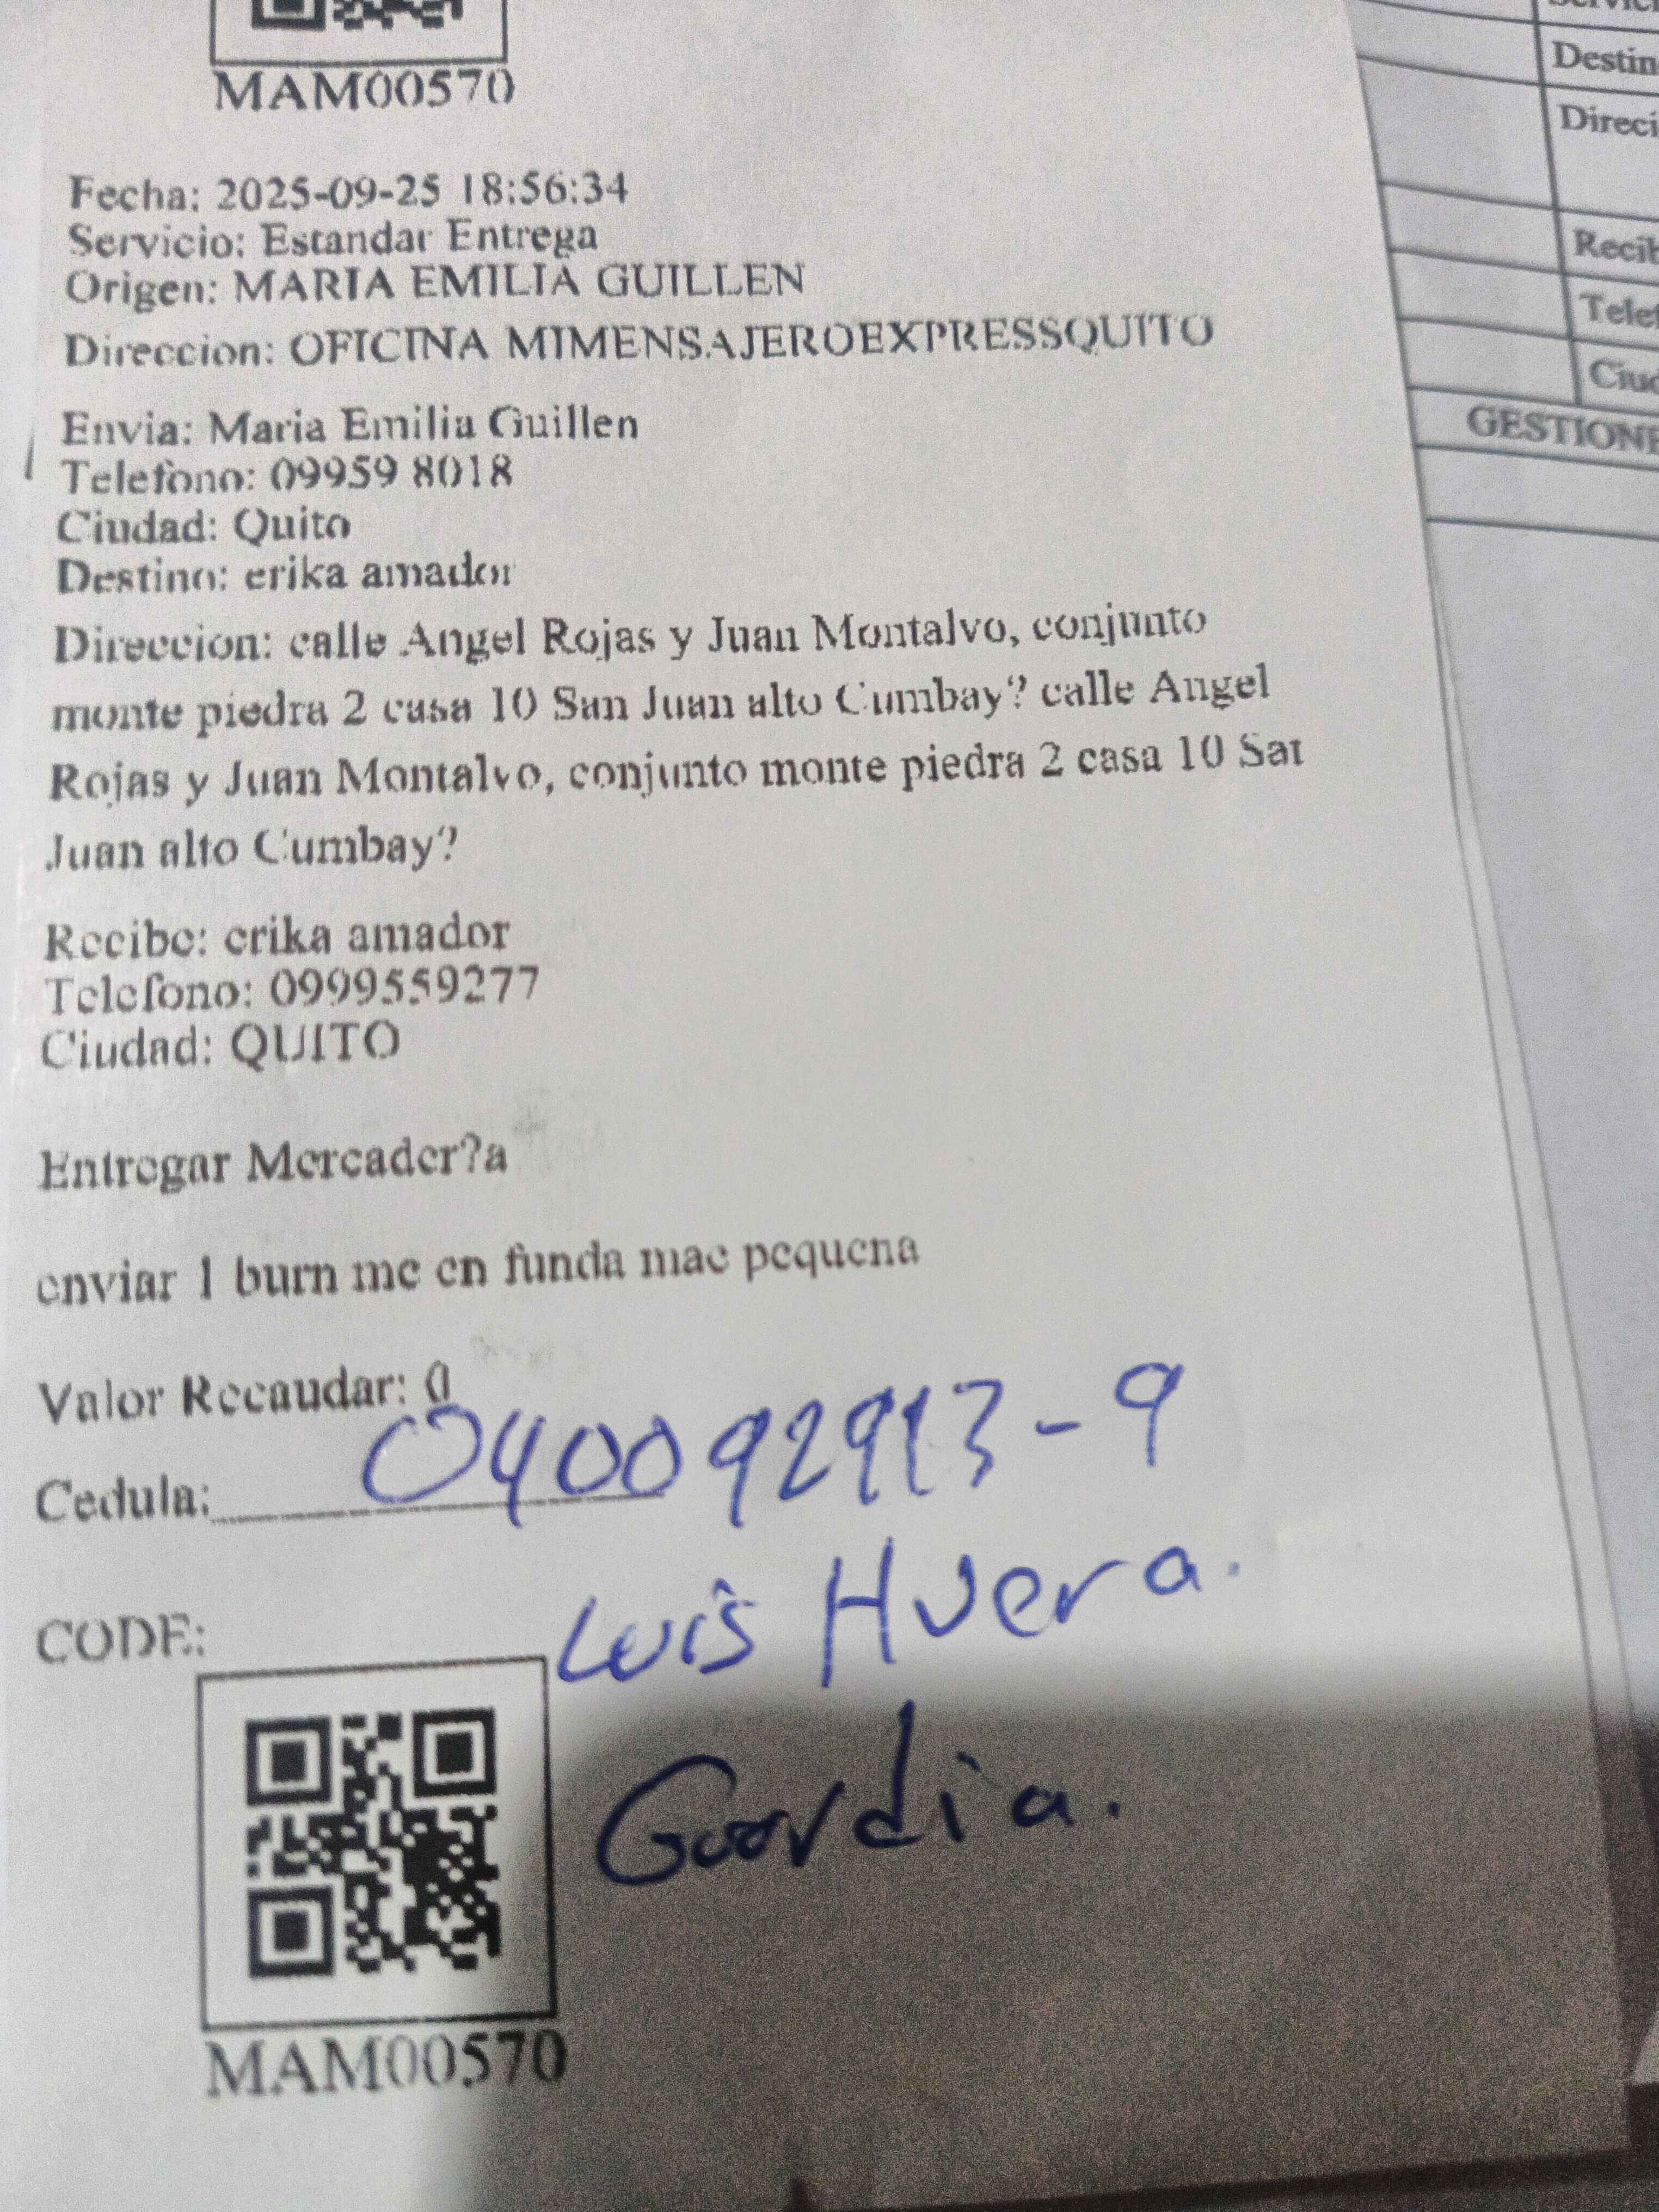 MAM00570
Fecha: 2025-09-25 18:56:34
Servicio: Estandar Entrega
Origen: MARIA EMILIA GUILLEN
Direccion: OFICINA MIMENSAJEROEXPRESSQUITO
Envia: Maria Emilia Guillen
Telefono: 09959 8018
Ciudad: Quito
Destino: erika amador
Direccion: calle Angel Rojas y Juan Montalvo, conjunto
monte piedra 2 casa 10 San Juan alto Cumbay? calle Angel
Rojas y Juan Montalvo, conjunto monte piedra 2 casa 10 San
Juan alto Cumbay?
Recibe: erika amador
Telefono: 0999559277
Ciudad: QUITO
Entregar Mercader?a
enviar 1 burn me en funda mae pequena
Valor Recaudar: 0
Cedula: 040092913-9
Luis Huera.
CODE:
Guardia.
MAM00570
Destin
Direcci
Recib
Telef
Ciud
GESTIONE